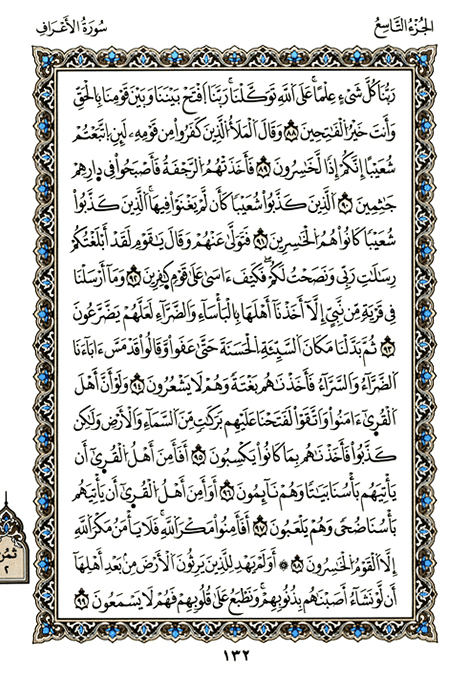 الجُزْءُ التَّاسِعُ
سُورَةُ الأَعْرَافِ
رَبُّنَا كُلَّ شَيْءٍ عِلْمًا عَلَى اَللَّهِ تَوَكَّلْنَا رَبَّنَا اَفْتَحْ بَيْنَنَا وَبَيْنَ قَوْمِنَا بِالْحَقِّ
وَأَنتَ خَيْرُ اُلْفَٰتِحِينَ ٨٨ وَقَالَ اَلْمَلَأُ اُلَّذِينَ كَفَرُواْ مِن قَوْمِهِۦ لَئِنِ اِتَّبَعْتُمْ
شُعَيْبًا إِنَّكُمْ إِذًا لَّخَٰسِرُونَ ٨٩ فَأَخَذَتْهُمُ اُلرَّجْفَةُ فَأَصْبَحُواْ فِي دِارِهِمْ
جَٰثِمِينَ ٩٠ اَلَّذِينَ كَذَّبُواْ شُعَيْبًا كَأَن لَّمْ يَغْنَوْاْ فِيهَا اَلَّذِينَ كَذَّبُواْ
شُعَيْبًا كَانُواْ هُمُ اُلْخَٰسِرِينَ ٩١ فَتَوَلَّىٰ عَنْهُمْ وَقَالَ يَٰقَوْمِ لَقَدْ أَبْلَغْتُكُمْ
رِسَٰلَٰتِ رَبِّي وَنَصَحْتُ لَكُمْ فَكَيْفَ ءَاسَىٰ عَلَىٰ قَوْمٍ كٰفِرِينَ ٩٢ وَمَا أَرْسَلْنَا
فِي قَرْيَةٍ مِّن نَّبِيٍّ إِلَّا أَخَذْنَا أَهْلَهَا بِالْبَأْسَاءِ وَالضَّرَّاءِ لَعَلَّهُمْ يَضَّرَّعُونَ
٩٣ ثُمَّ بَدَّلْنَا مَكَانَ اَلسَّيِّئَةِ اِلْحَسَنَةَ حَتَّىٰ عَفَواْ وَّقَالُواْ قَدْ مَسَّ ءَابَاءَنَا
اَلضَّرَّاءُ وَالسَّرَّاءُ فَأَخَذْنَٰهُم بَغْتَةً وَهُمْ لَا يَشْعُرُونَ ٩٤ وَلَوْ أَنَّ أَهْلَ
اَلْقُرَىٰ ءَامَنُواْ وَاتَّقَوْاْ لَفَتَحْنَا عَلَيْهِم بَرَكَٰتٍ مِّنَ اَلسَّمَاءِ وَالْأَرْضِ وَلَٰكِن
كَذَّبُواْ فَأَخَذْنَٰهُم بِمَا كَانُواْ يَكْسِبُونَ ٩٥ أَفَأَمِنَ أَهْلُ اُلْقُرَىٰ أَن
يَأْتِيَهُم بَأْسُنَا بَيَٰتًا وَهُمْ نَائِمُونَ ٩٦ أَوَامِنَ أَهْلُ اُلْقُرَىٰ أَن يَأْتِيَهُم
بَأْسُنَا ضُحًى وَهُمْ يَلْعَبُونَ ٩٧ أَفَأَمِنُواْ مَكْرَ اَللَّهِ فَلَا يَأْمَنُ مَكْرَ اَللَّهِ
إِلَّا اَلْقَوْمُ اُلْخَٰسِرُونَ ٩٨ ۞ أَوَلَمْ يَهْدِ لِلَّذِينَ يَرِثُونَ اَلْأَرْضَ مِنۢ بَعْدِ أَهْلِهَا
أَن لَّوْ نَشَاءُ أَصَبْنَٰهُم بِذُنُوبِهِمْ وَنَطْبَعُ عَلَىٰ قُلُوبِهِمْ فَهُمْ لَا يَسْمَعُونَ ٩٩
ثُمُن
٢
١٣٢